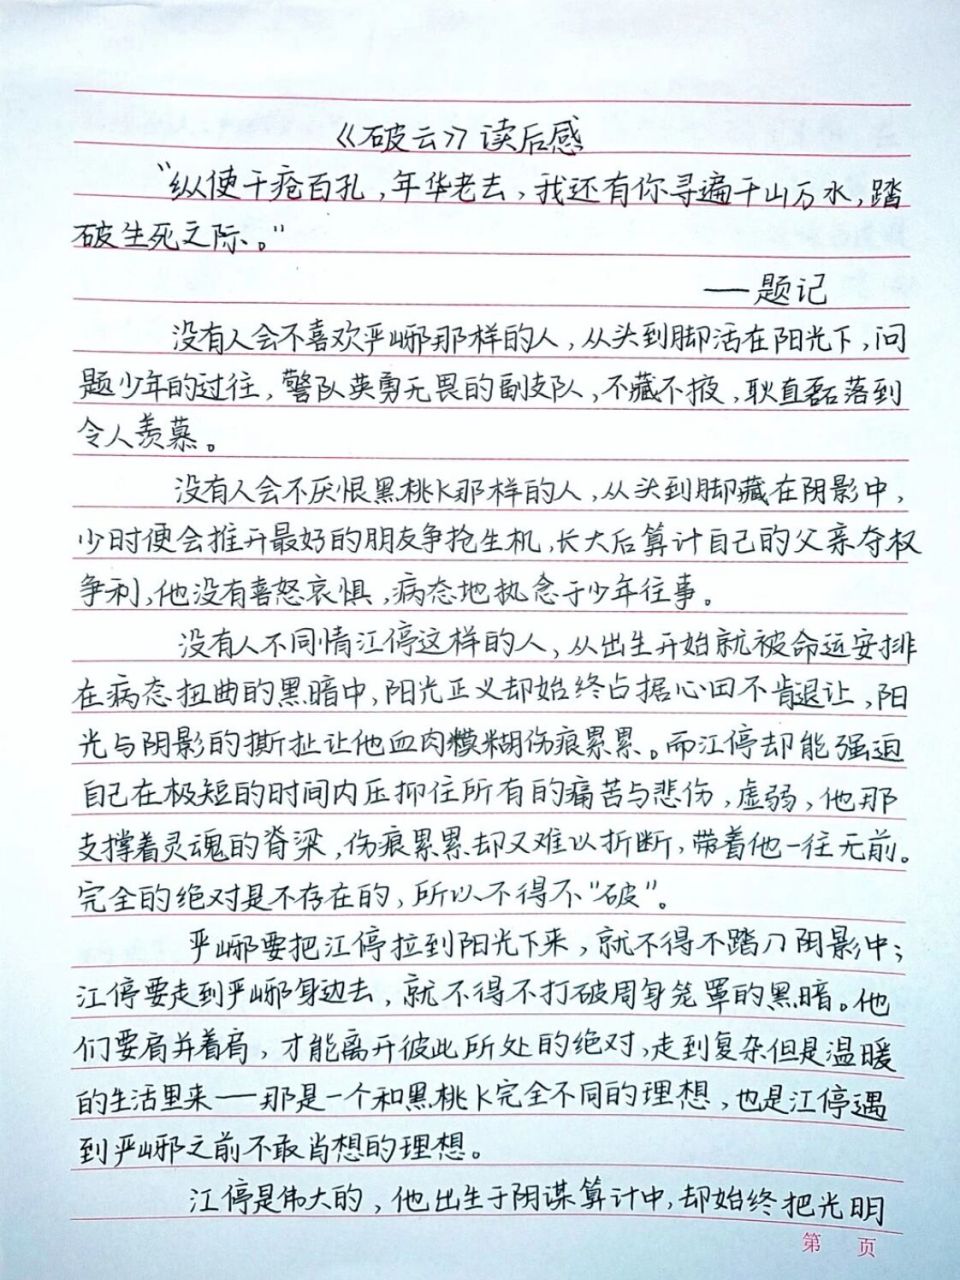 《破云》读后感
“纵使千疮百孔，年华老去，我还有你寻遍千山万水，踏
破生死之际。”
——题记
没有人会不喜欢严峫那样的人，从头到脚活在阳光下，问
题少年的过往，警队英勇无畏的副支队，不藏不掖，耿直磊落到
令人羡慕。
没有人会不厌恨黑桃K那样的人，从头到脚藏在阴影中，
少时便会推开最好的朋友争抢生机，长大后算计自己的父亲夺权
争利，他没有喜怒哀惧，病态地执念于少年往事。
没有人不同情江停这样的人，从出生开始就被命运安排
在病态扭曲的黑暗中，阳光正义却始终占据心田不肯退让，阳
光与阴影的撕扯让他血肉模糊伤痕累累。而江停却能强迫
自己在极短的时间内压抑住所有的痛苦与悲伤，虚弱，他那
支撑着灵魂的脊梁，伤痕累累却又难以折断，带着他一往无前。
完全的绝对是不存在的，所以不得不“破”。
严峫要把江停拉到阳光下来，就不得不踏入阴影中；
江停要走到严峫身边去，就不得不打破周身笼罩的黑暗。他
们要肩并着肩，才能离开彼此所处的绝对，走到复杂但是温暖
的生活里来——那是一个和黑桃K完全不同的理想，也是江停遇
到严峫之前不敢肖想的理想。
江停是伟大的，他出生于阴谋算计中，却始终把光明
第 页